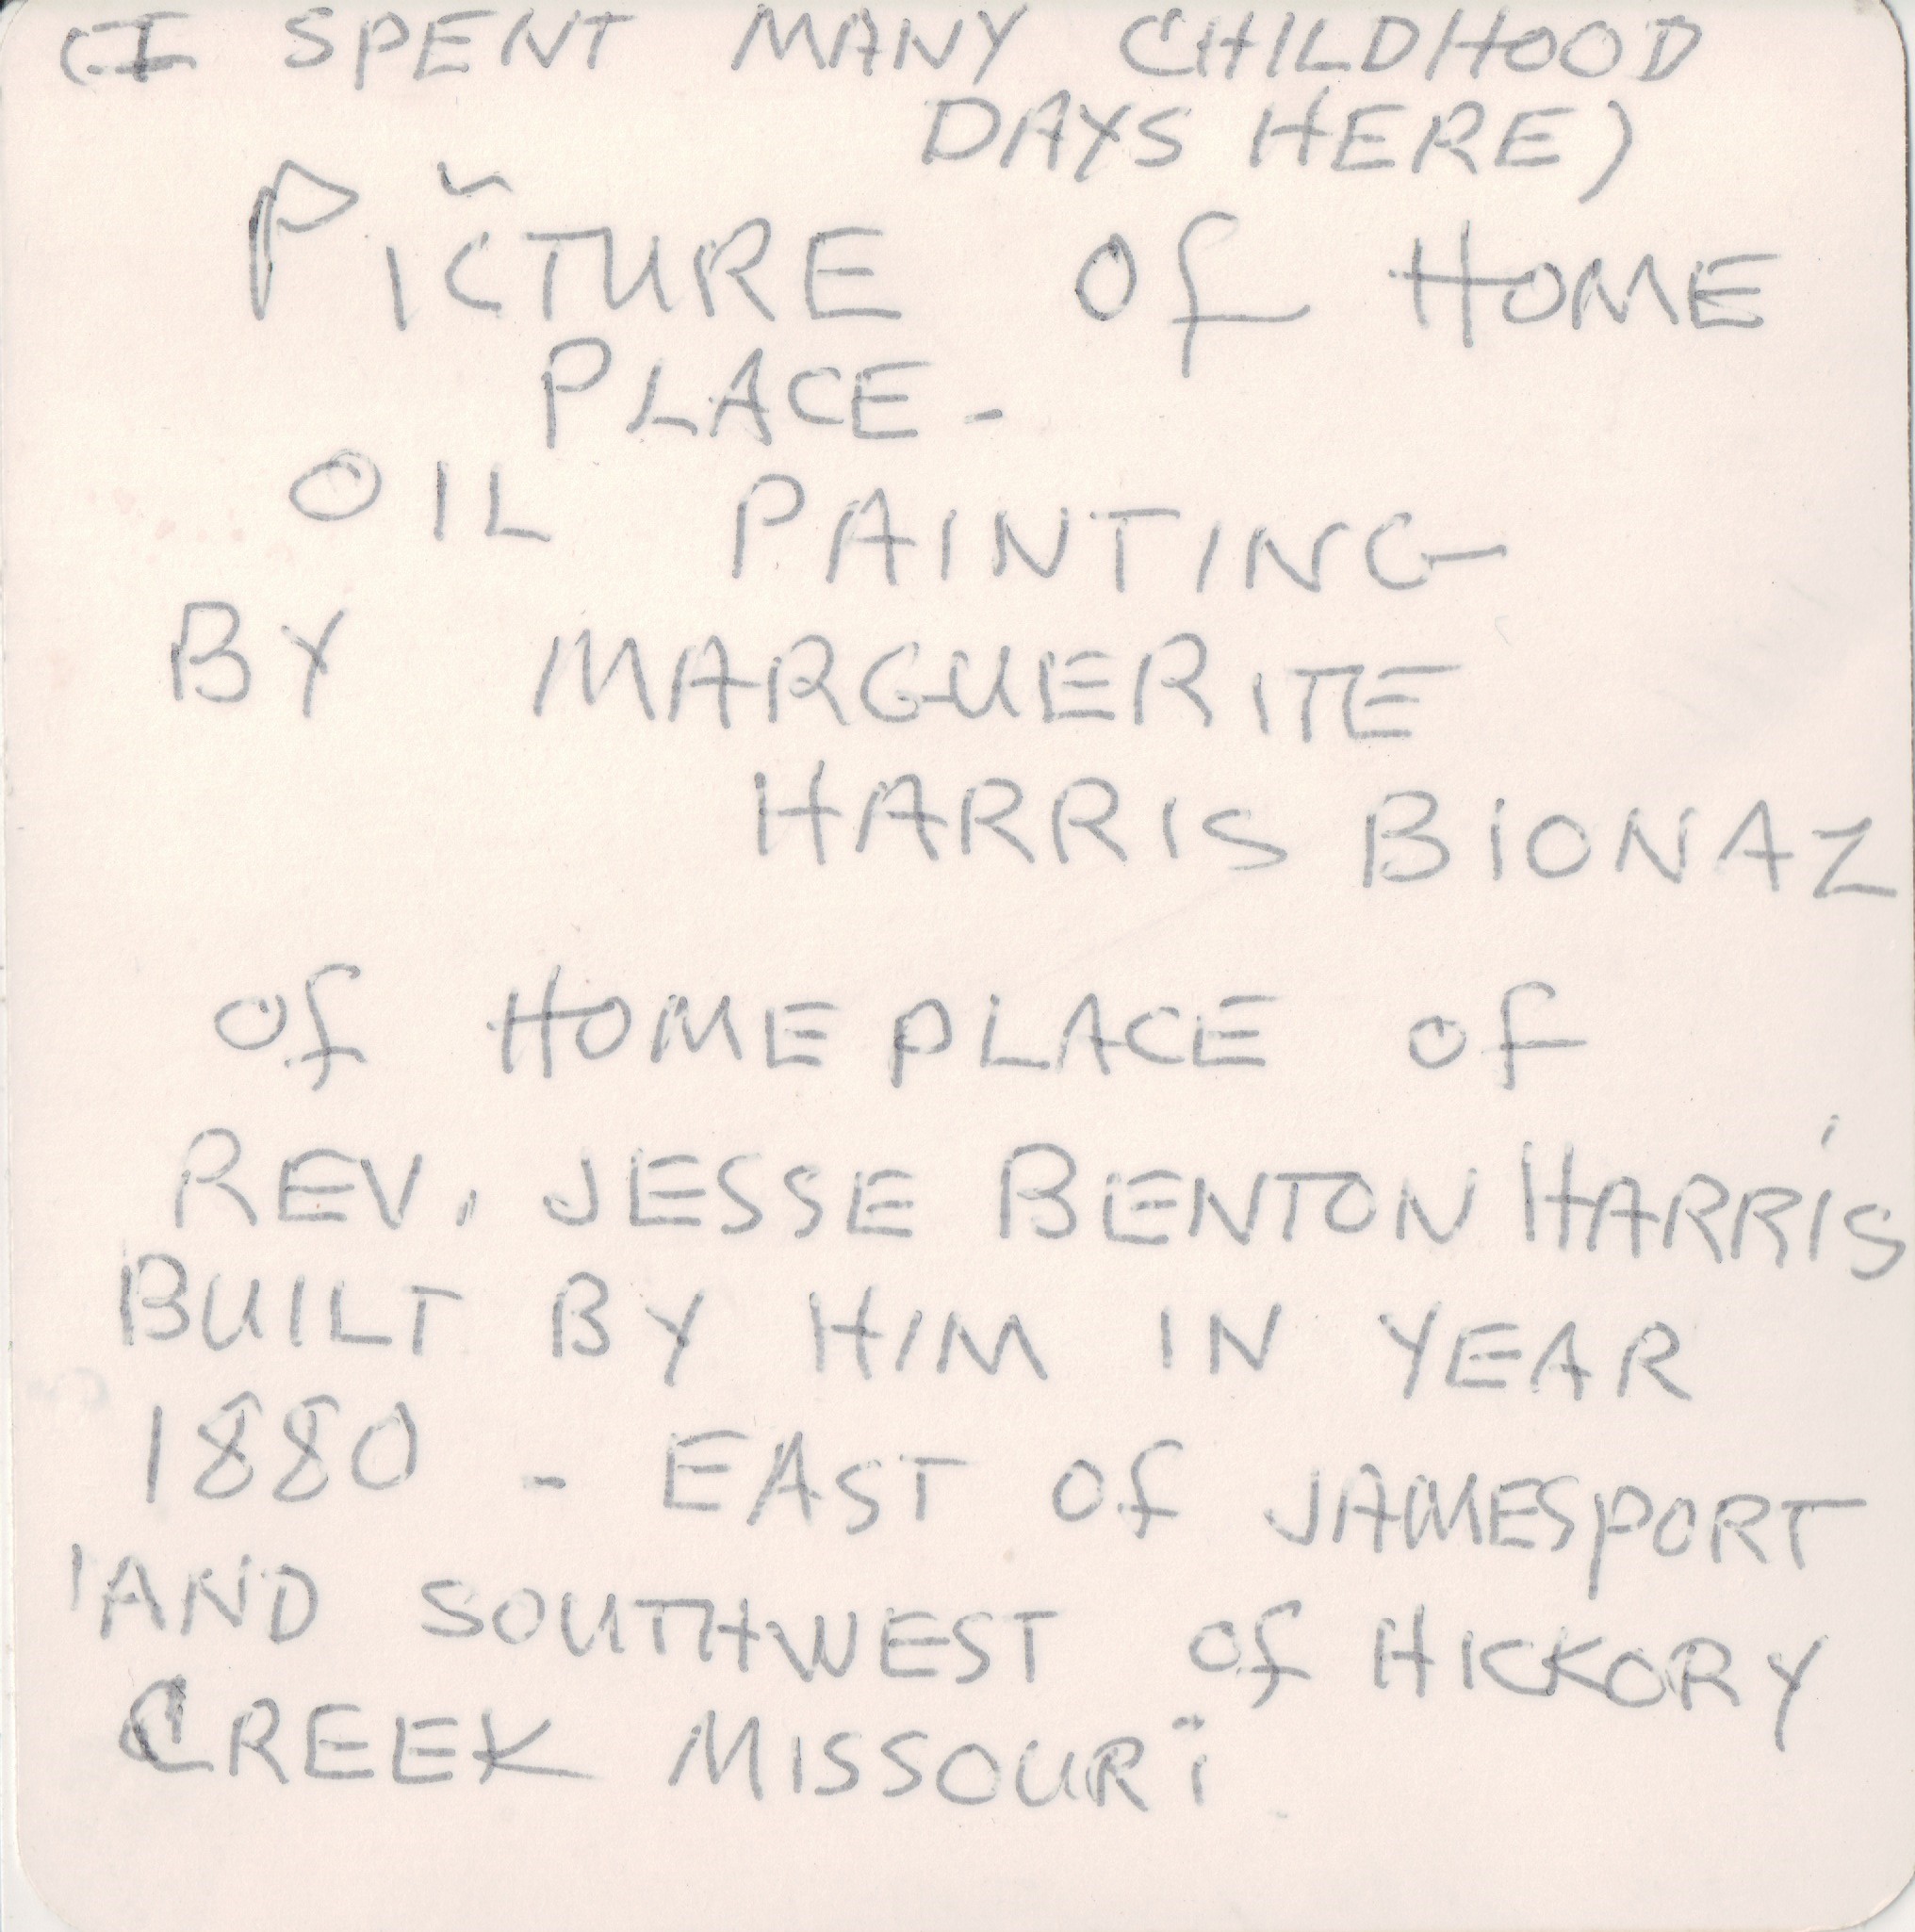 (I SPENT MANY CHILDHOOD
DAYS HERE)
PICTURE Of HOME
PLACE -
OIL PAINTING
BY MARGUERITE
HARRIS BIONAZ
Of HOMEPLACE Of
REV. JESSE BENTON HARRIS
BUILT BY HIM IN YEAR
1880 - EAST Of JAMESPORT
AND SOUTHWEST Of HICKORY
CREEK MISSOURi